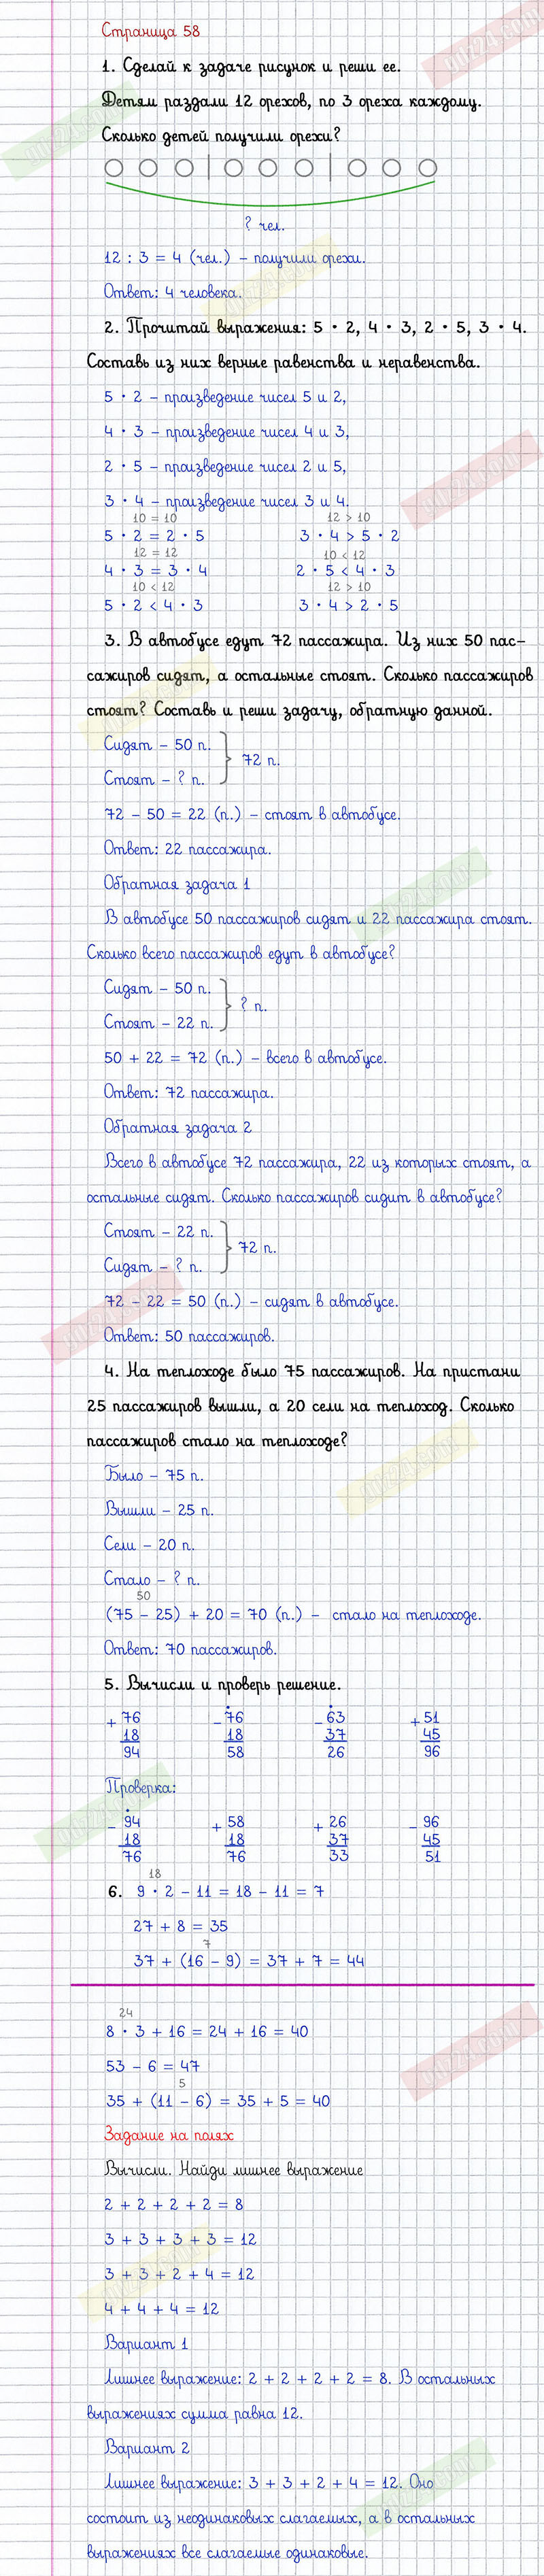 Страница 58
1. Сделай к задаче рисунок и реши ее.
Детям раздали 12 орехов, по 3 ореха каждому.
Сколько детей получили орехи?
? чел.
12 : 3 = 4 (чел.) – получили орехи.
Ответ: 4 человека.
2. Прочитай выражения: 5 · 2, 4 · 3, 2 · 5, 3 · 4.
Составь из них верные равенства и неравенства.
5 · 2 – произведение чисел 5 и 2,
4 · 3 – произведение чисел 4 и 3,
2 · 5 – произведение чисел 2 и 5,
3 · 4 – произведение чисел 3 и 4.
10 = 10 12 > 10
5 · 2 = 2 · 5 3 · 4 > 5 · 2
12 = 12 10 < 12
4 · 3 = 3 · 4 2 · 5 < 4 · 3
10 < 12 12 > 10
5 · 2 < 4 · 3 3 · 4 > 2 · 5
3. В автобусе едут 72 пассажира. Из них 50 пас-
сажиров сидят, а остальные стоят. Сколько пассажиров
стоят? Составь и реши задачу, обратную данной.
Сидят – 50 п.
72 п.
Стоят – ? п.
72 – 50 = 22 (п.) – стоят в автобусе.
Ответ: 22 пассажира.
Обратная задача 1
В автобусе 50 пассажиров сидят и 22 пассажира стоят.
Сколько всего пассажиров едут в автобусе?
Сидят – 50 п.
? п.
Стоят – 22 п.
50 + 22 = 72 (п.) – всего в автобусе.
Ответ: 72 пассажира.
Обратная задача 2
Всего в автобусе 72 пассажира, 22 из которых стоят, а
остальные сидят. Сколько пассажиров сидит в автобусе?
Стоят – 22 п.
72 п.
Сидят – ? п.
72 – 22 = 50 (п.) – сидят в автобусе.
Ответ: 50 пассажиров.
4. На теплоходе было 75 пассажиров. На пристани
25 пассажиров вышли, а 20 сели на теплоход. Сколько
пассажиров стало на теплоходе?
Было – 75 п.
Вышли – 25 п.
Сели – 20 п.
Стало – ? п.
50
(75 – 25) + 20 = 70 (п.) – стало на теплоходе.
Ответ: 70 пассажиров.
5. Вычисли и проверь решение.
+ 76 – 76 – 63 + 51
18 18 37 45
94 58 26 96
Проверка:
– 94 + 58 + 26 – 96
18 18 37 45
76 76 33 51
18
6. 9 · 2 – 11 = 18 – 11 = 7
27 + 8 = 35
7
37 + (16 – 9) = 37 + 7 = 44
24
8 · 3 + 16 = 24 + 16 = 40
53 – 6 = 47
5
35 + (11 – 6) = 35 + 5 = 40
Задание на полях
Вычисли. Найди лишнее выражение
2 + 2 + 2 + 2 = 8
3 + 3 + 3 + 3 = 12
3 + 3 + 2 + 4 = 12
4 + 4 + 4 = 12
Вариант 1
Лишнее выражение: 2 + 2 + 2 + 2 = 8. В остальных
выражениях сумма равна 12.
Вариант 2
Лишнее выражение: 3 + 3 + 2 + 4 = 12. Оно
состоит из неодинаковых слагаемых, а в остальных
выражениях все слагаемые одинаковые.